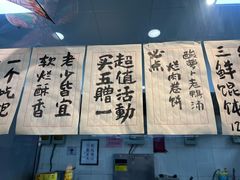 一个
老少皆宜
软烂酥香
超值活動
买五赠一
酸萝卜老鸭汤
烂肉卷饼
必点
三鲜馄饨